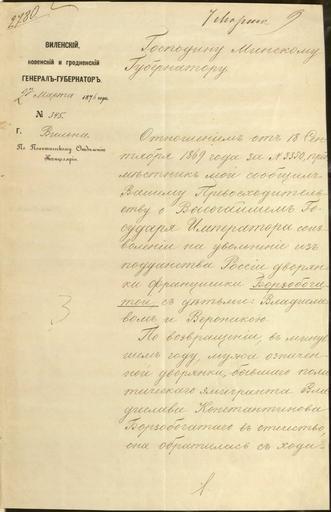 2780
ВИЛЕНСКІЙ,
КОВЕНСКІЙ И ГРОДНЕНСКІЙ
ГЕНЕРАЛЪ-ГУБЕРНАТОРЪ.
27 Марта 187 года.
№ 345.
Г. Вильна.
По Отдѣленію
Канцеляріи
Господину Минскому
Губернатору.
Отношеніемъ отъ 18 Сен-
тября 1869 года за № 3330, пред-
мѣстникъ мой сообщилъ
Вашему Превосходитель-
ству о Высочайшемъ Го-
сударя Императора соиз-
воленіи на увольненіе изъ
подданства Россіи дворян-
ки Франциски Борзобога-
той съ дѣтьми: Владисла-
вомъ и Вероникою.
По возвращеніи, въ минув-
шемъ году, мужа означен-
ной дворянки, бывшаго поли-
тическаго эмигранта Вла-
дислава Константинова
Борзобогатаго въ отечество,
она обратилась съ хода-